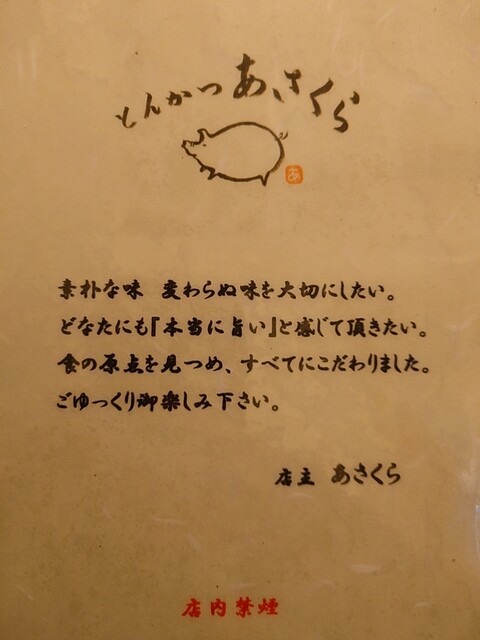 とんかつ あさくら
あ
素朴な味 変わらぬ味を大切にしたい。
どなたにも『本当に旨い』と感じて頂きたい。
食の原点を見つめ、すべてにこだわりました。
ごゆっくり御楽しみ下さい。
店主 あさくら
店内禁煙